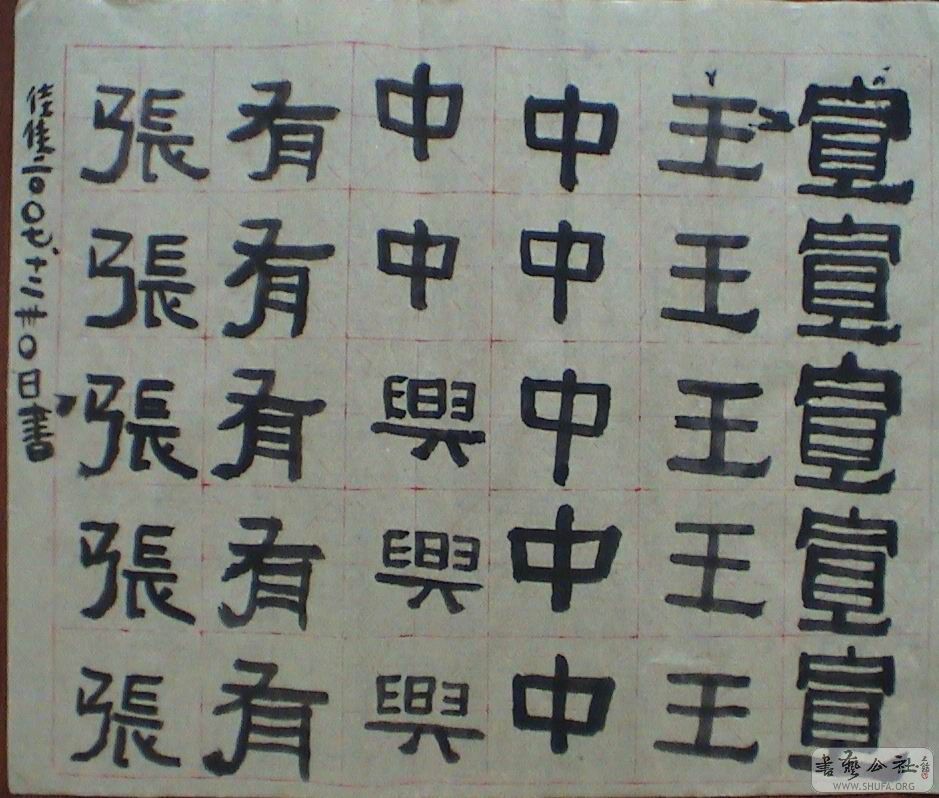 宣宣宣宣宣
王王王王王
中中中中中
中中興興興
有有有有有
張張張張張
佳佳二00七、十二廿0日書
書藝公社
WWW.SHUFA.ORG